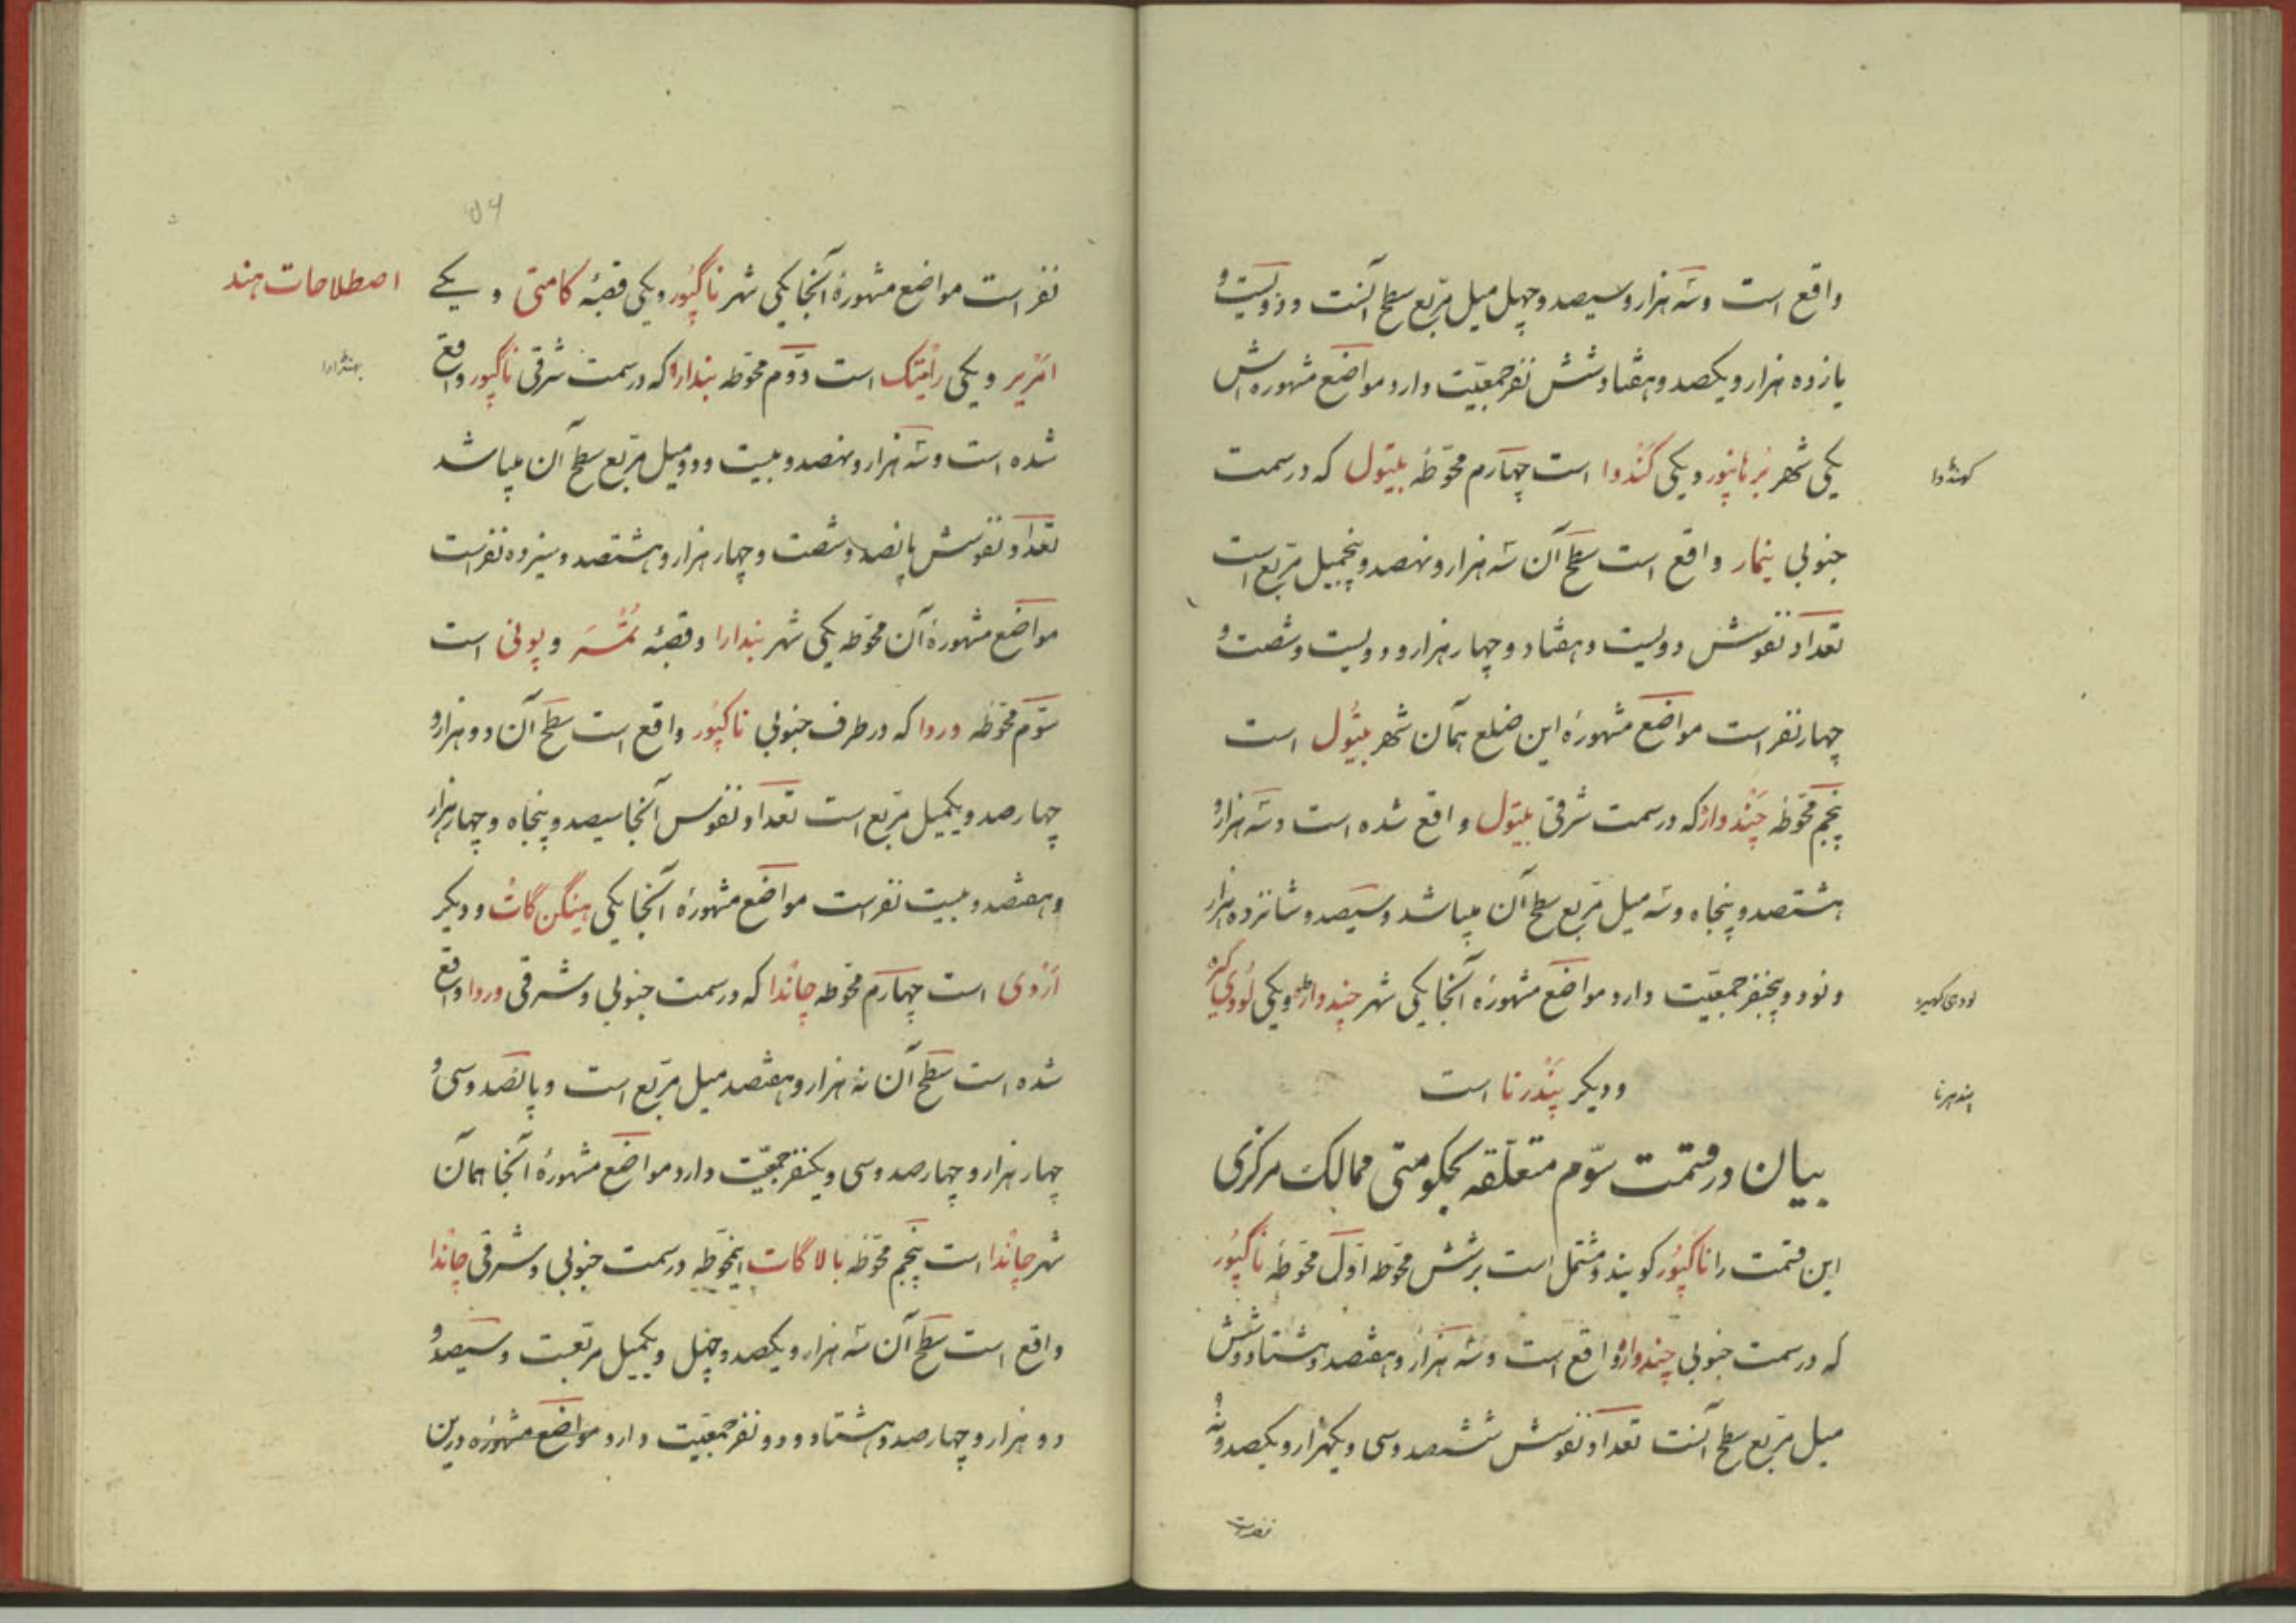 واقع است و سه هزار و سیصد و چهل میل مربع سطح آنست و دویست و
یازده هزار و یکصد و هفتاد و شش نفر جمعیّت دارد مواضع مشهوره‌اش
یکی شهر بُرهانپور و یکی کَنْدوا است چهارم محوّطهٔ بیتول که در سمت
کهنڈوا
جنوبی نیمار واقع است سطح آن سه هزار و نهصد و پنجمیل مربع است
تعداد نفوسش دویست و هفتاد و چهار هزار و دویست و شصت و
چهار نفر است مواضع مشهورهٔ این ضلع همان شهر بیتُول است
پنجم محوّطهٔ چَنْدواره که در سمت شرقی بیتول واقع شده است و سه هزار و
هشتصد و پنجاه و سه میل مربع سطح آن میباشد و سیصد و شانزده هزار
و نود و پنجنفر جمعیّت دارد مواضع مشهورهٔ آنجا یکی شهر چندواره و یکی لُودی کیره
لودی کهیره
و دیگر پَنْدرنا است
پندهرنا
بیان در قسمت سوّم متعلّقه بحکومتی ممالک مرکزی
این قسمت را ناکپُور کویند و مشتمل است بر شش محوّطه اوّل محوّطهٔ ناگپُور
که در سمت جنوبی چندواره واقع است و سه هزار و هفتصد و هشتاد و شش
میل مربع سطح آنست تعداد نفوسش ششصد و سی و یکهزار و یکصد و نه
نفر است
۵۶
اصطلاحات هند
نفر است مواضع مشهورهٔ آنجا یکی شهر ناگپُور و یکی قصبهٔ کامتی و یکے
امْریر و یکی رامْتک است دوّم محوّطه بندارا که در سمت شرقی ناگپور واقع
بهنڈارا
شده است و سه هزار و نهصد و بیست و دو میل مربع سطح آن میباشد
تعداد نفوسش پانصد و شصت و چهار هزار و هشتصد و سیزده نفر است
مواضع مشهورهٔ آن محوّطه یکی شهر بندارا و قصبهٔ تُمْسَر و پونی است
سوّم محوّطهٔ وردا که در طرف جنوبی ناکپُور واقع است سطح آن دو هزار و
چهار صد و یکمیل مربع است تعداد نفوس آنجا سیصد و پنجاه و چهار هزار
و هفتصد و بیست نفر است مواضع مشهورهٔ آنجا یکی هینگن گات و دیکر
ارْوی است چهارم محوّطه چاندا که در سمت جنوبی و شرقی وردا واقع
شده است سطح آن نه هزار و هفتصد میل مربع است و پانصد و سی و
چهار هزار و چهار صد و سی و یکنفر جمعیّت دارد مواضع مشهورهٔ آنجا همان
شهر چاندا است پنجم محوّطهٔ بالا گات اینمحوّطه در سمت جنوبی و شرقی چاندا
واقع است سطح آن سه هزار و یکصد و چهل و یکمیل مربعست و سیصد و
دو هزار و چهار صد و هشتاد و دو نفر جمعیّت دارد مواضع مشهوره درین